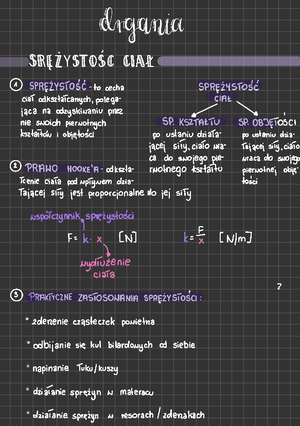 drgania
SPRĘŻYSTOŚĆ CIAŁ
1 SPRĘŻYSTOŚĆ - to cecha
ciał odkształcanych, polega-
jąca na odzyskiwaniu przez
nie swoich pierwotnych
kształtów i objętości
SPRĘŻYSTOŚĆ
CIAŁ
SP. KSZTAŁTU
po ustaniu działa-
jącej siły, ciało wra-
ca do swojego pie-
rwotnego kształtu
SP. OBJĘTOŚCI
po ustaniu dzia-
łającej siły, ciało
wraca do swojego
pierwotnej obję-
tości
2 PRAWO HOOKE'A - odkszta-
łcenie ciała pod wpływem dzia-
łającej siły jest proporcjonalne do jej siły
współczynnik sprężystości
F = k · x [N]
k = F/x [N/m]
wydłużenie
ciała
?
3 PRAKTYCZNE ZASTOSOWANIA SPRĘŻYSTOŚCI:
* zderzenie cząsteczek powietrza
* odbijanie się kul bilardowych od siebie
* napinanie łuku/kuszy
* działanie sprężyn w materacu
* działanie sprężyn w resorach / zderzakach